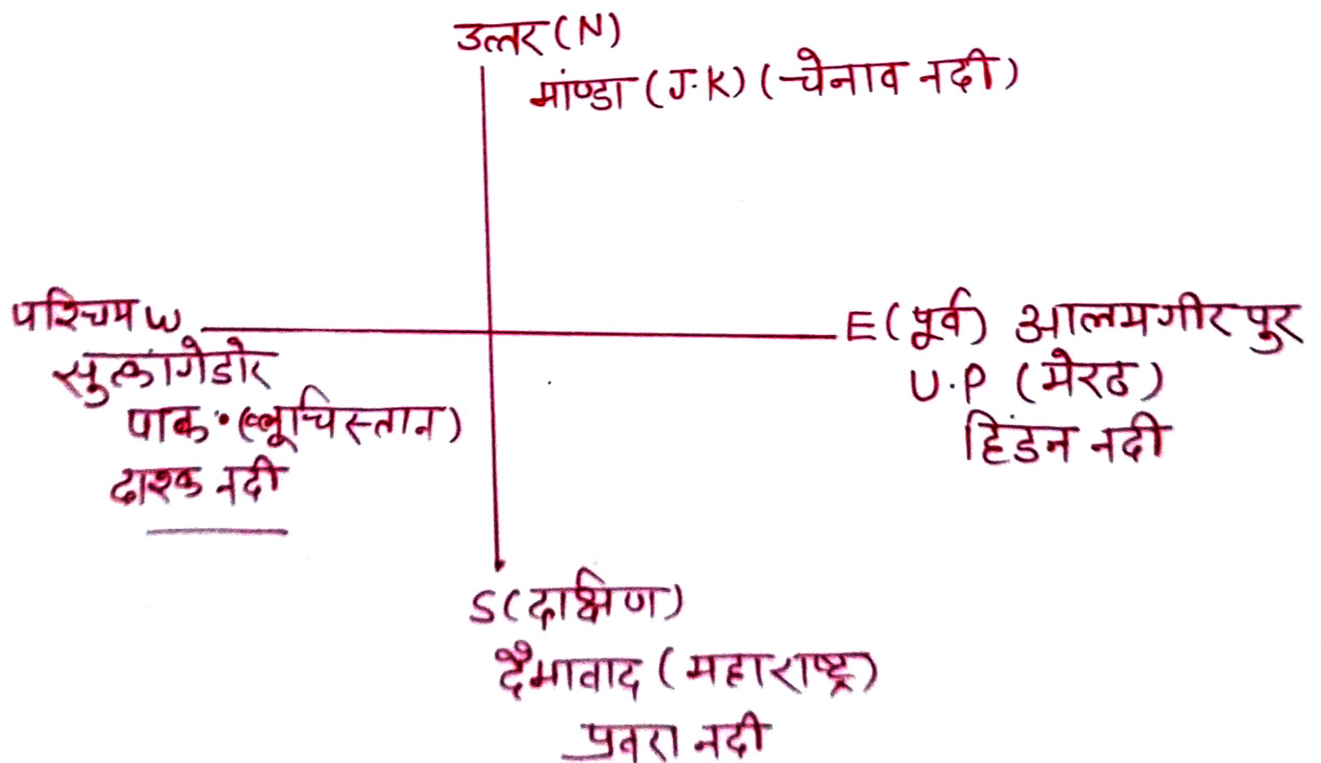 उत्तर (N)
मांण्डा (J.K) (चेनाव नदी)
पश्चिम W
सुत्कांगेडोर
पाक. (ब्लूचिस्तान)
दाश्क नदी
E (पूर्व) आलमगीरपुर
U.P (मेरठ)
हिंडन नदी
S (दक्षिण)
दैमावाद (महाराष्ट्र)
प्रवरा नदी